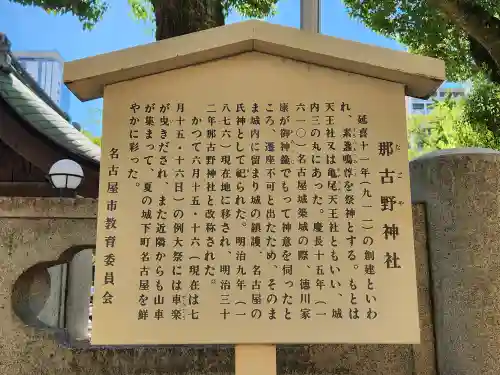 那古野神社
なごやじんじゃ
延喜十一年(九一一)の創建といわ
れ、素盞嗚尊を祭神とする。もとは
天王社又は亀尾天王社ともいい、城
内三の丸にあった。慶長十五年(一
六一〇)名古屋城築城の際、徳川家
康が御神籤でもって神意を伺ったと
ころ、遷座不可と出たため、そのま
ま城内に留まり城の鎮護、名古屋の
氏神として祀られた。明治九年(一
八七六)現在地に移され、明治三十
二年那古野神社と改称された。
かつて六月十五・十六(現在は七
月十五・十六日)の例大祭には車楽
が集まって、また近隣からも山車
やかに彩った。夏の城下町名古屋を鮮
名古屋市教育委員会